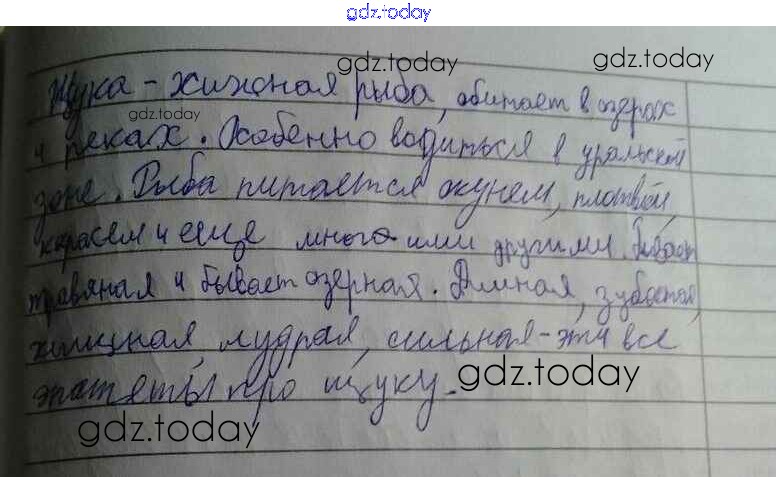 gdz.today
gdz.today gdz.today
Щука - хищная рыба, обитает в озерах
gdz.today
и реках. Особенно водиться в уральской
зоне. Рыба питается окунем, плотвой,
карасем и еще много или другими. бывает
травяная и бывает озерная. Длиная, зубастая,
хищная, мудрая, сильная - эти все
эпатеты про щуку.
gdz.today
gdz.today